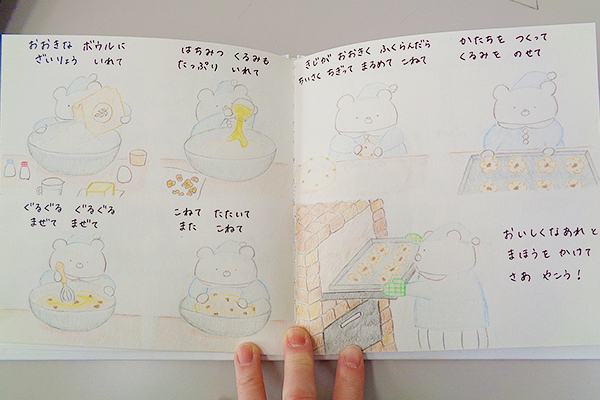 おおきな ボウルに
ざいりょう いれて
はちみつ くるみも
たっぷり いれて
ぐるぐる ぐるぐる
まぜて まぜて
こねて たたいて
また こねて
きじが おおきく ふくらんだら
ちいさく ちぎって まるめて こねて
かたちを つくって
くるみを のせて
おいしくなあれ と
まほうを かけて
さあ やこう!